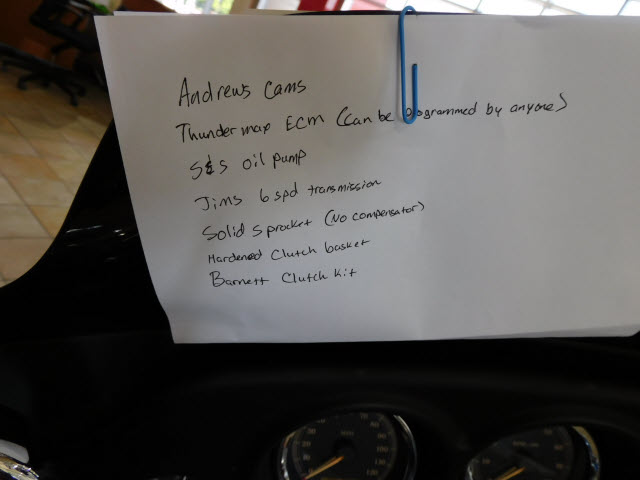 Andrews Cams
Thundermax ECM (can be programmed by anyone)
S&S oil pump
Jims 6 spd transmission
Solid sprocket (No compensator)
Hardened Clutch basket
Barnett Clutch kit